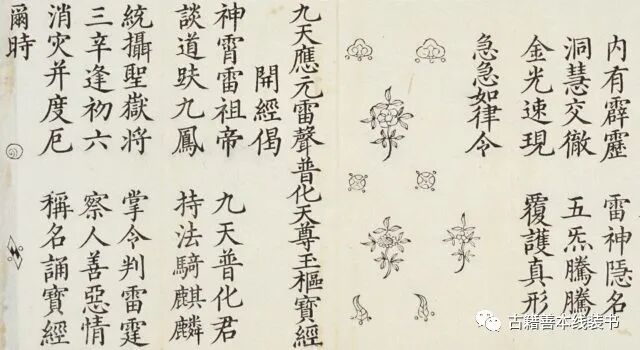 內有霹靂　雷神隱名
洞慧交徹　五炁騰騰
金光速現　覆護真形
急急如律令
九天應元雷聲普化天尊玉樞寶經
開經偈
神霄雷祖帝　九天普化君
談道趺九鳳　持法騎麒麟
統攝聖嶽將　掌令判雷霆
三辛逢初六　察人善惡情
消灾并度厄　稱名誦寶經
爾時
古籍善本线装书